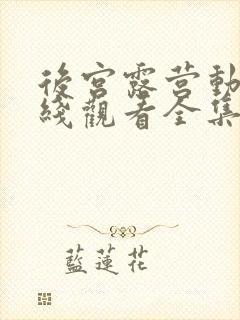 後宮露营動
綫觀看全集
藍蓮花